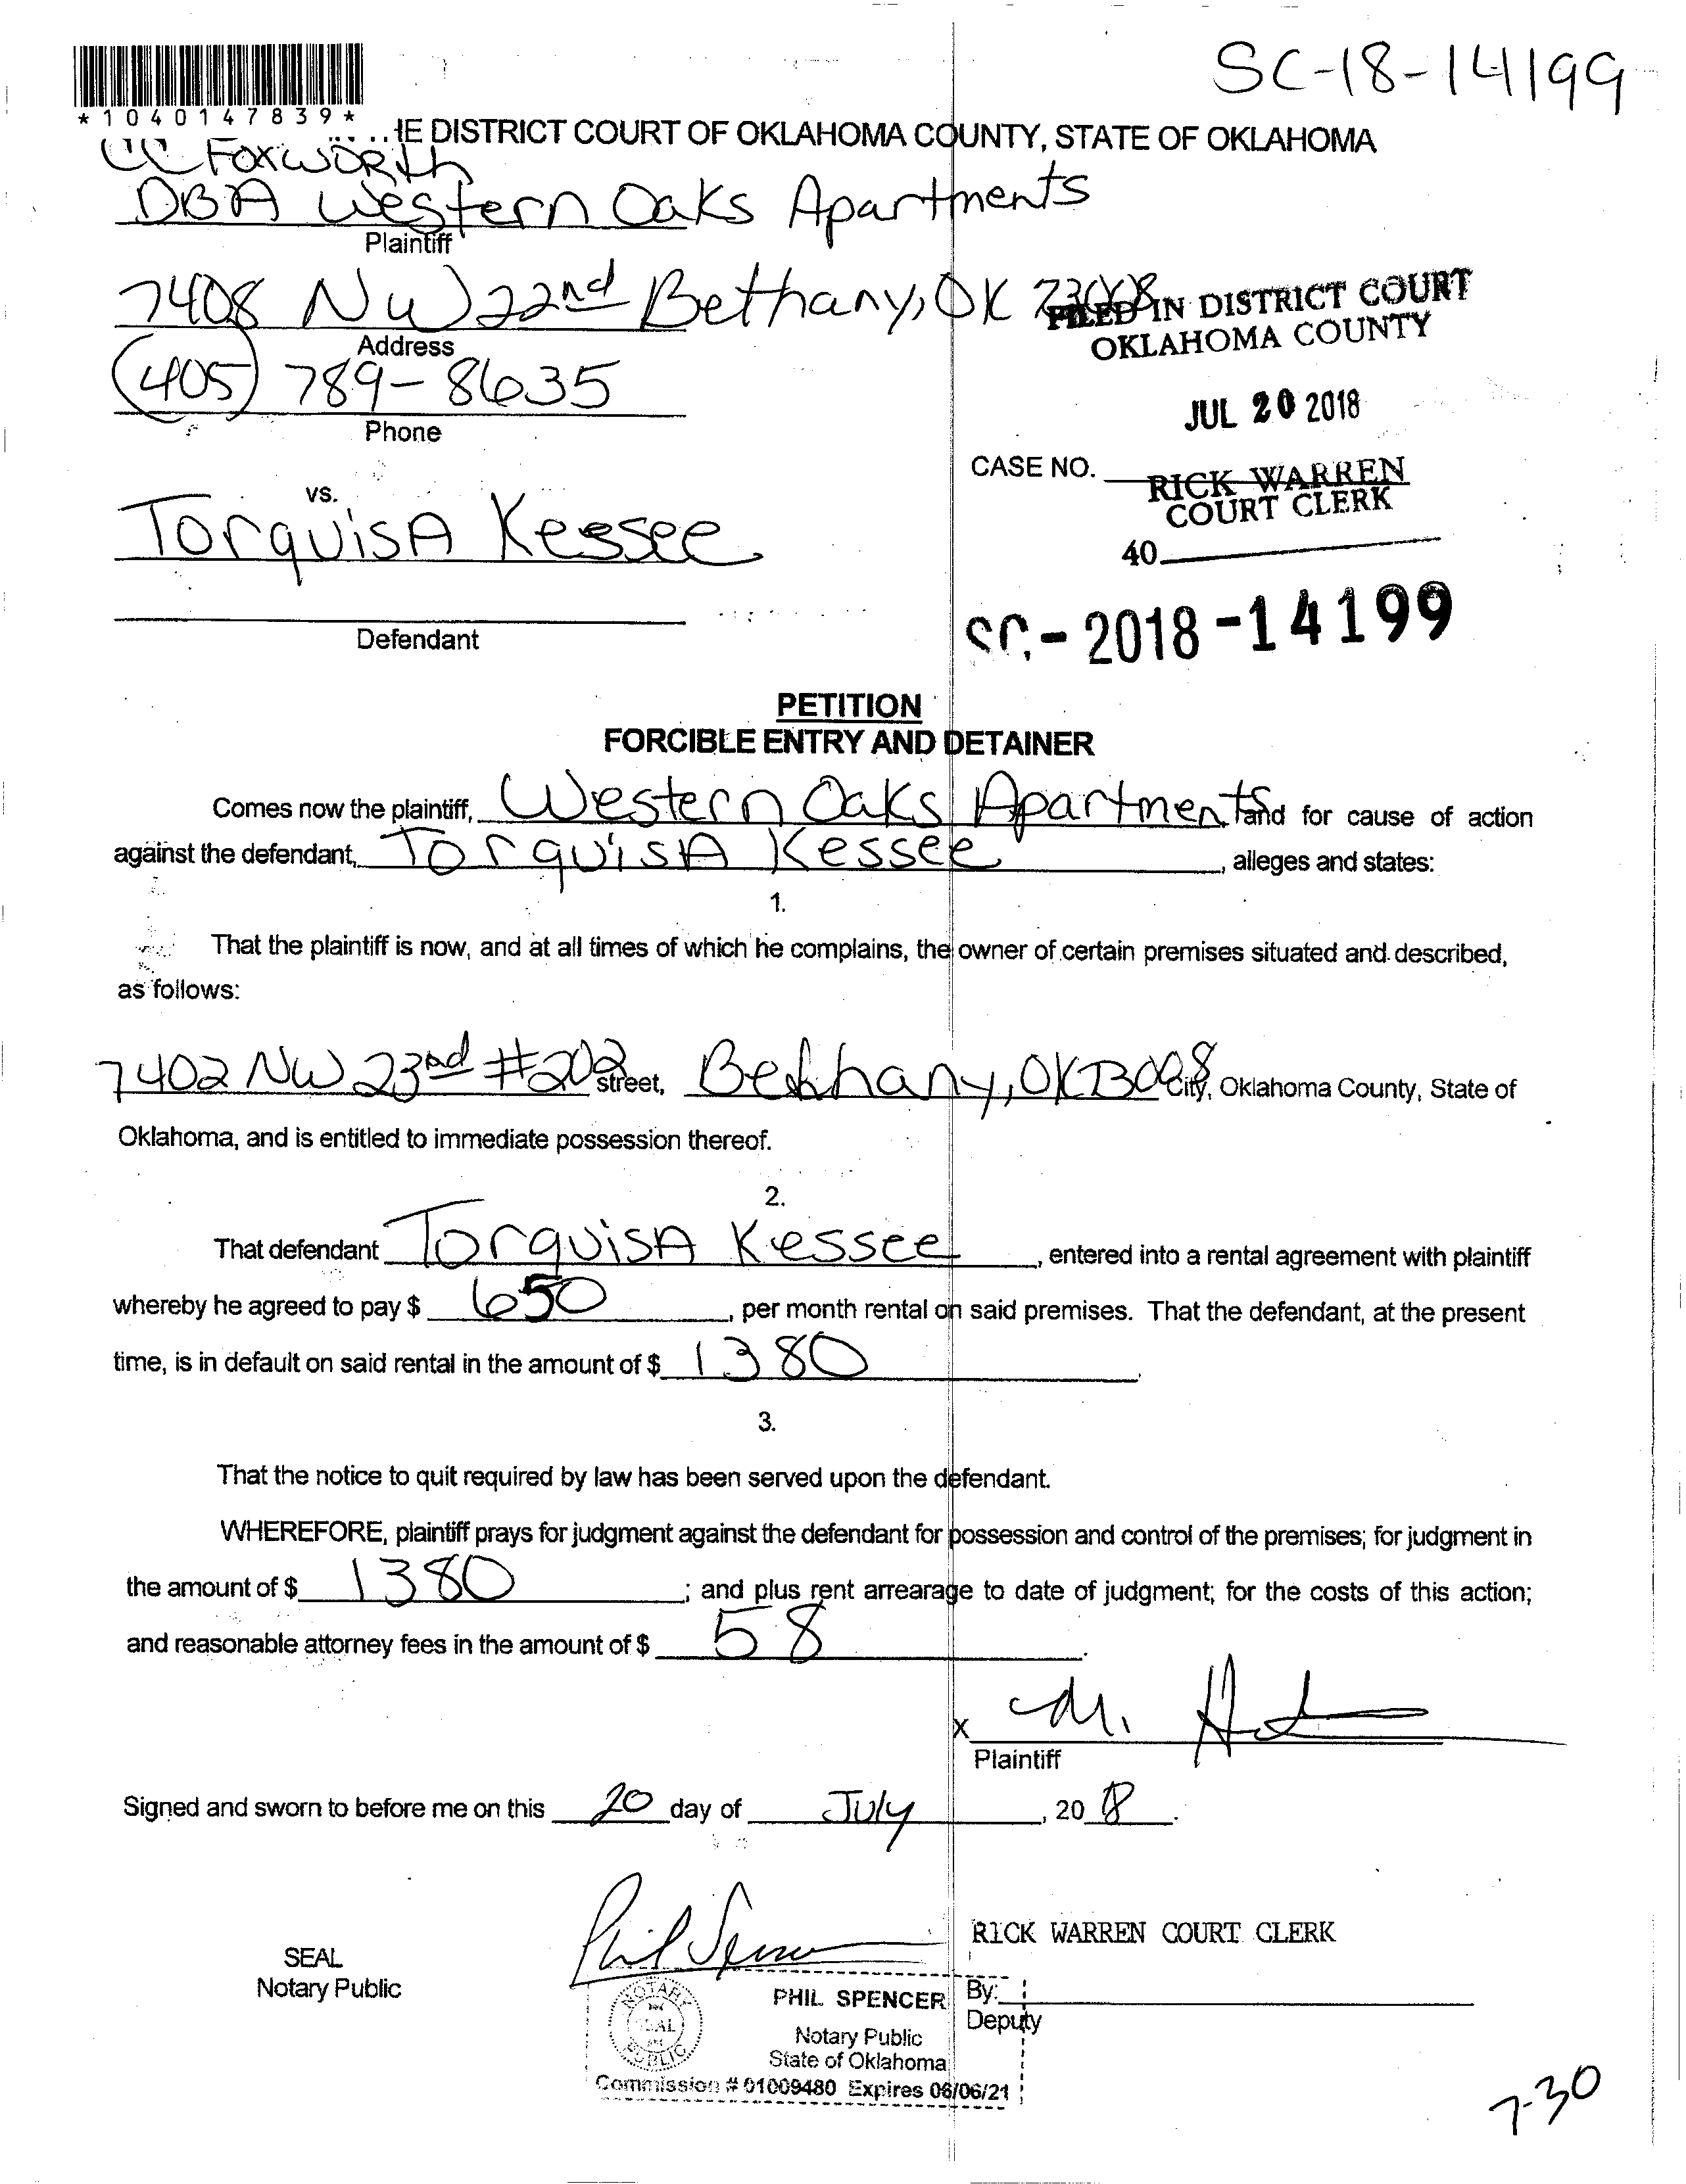 SC-18-14199
*1040147839*
HE DISTRICT COURT OF OKLAHOMA COUNTY, STATE OF OKLAHOMA
CC Foxworth
DBA Western Oaks Apartments
Plaintiff
7408 NW 22nd Bethany, OK 73008
FILED IN DISTRICT COURT
OKLAHOMA COUNTY
Address
(405) 789-8635
JUL 20 2018
Phone
CASE NO.
RICK WARREN
COURT CLERK
vs.
TorquisA Kessee
40
Defendant
SC-2018-14199
PETITION
FORCIBLE ENTRY AND DETAINER
Comes now the plaintiff, Western Oaks Apartments and for cause of action
against the defendant, TorquisA Kessee, alleges and states:
1.
That the plaintiff is now, and at all times of which he complains, the owner of certain premises situated and described,
as follows:
7402 NW 23rd #202 street, Bethany, OK 73008 City, Oklahoma County, State of
Oklahoma, and is entitled to immediate possession thereof.
2.
That defendant TorquisA Kessee, entered into a rental agreement with plaintiff
whereby he agreed to pay $ 650, per month rental on said premises. That the defendant, at the present
time, is in default on said rental in the amount of $ 1380.
3.
That the notice to quit required by law has been served upon the defendant.
WHEREFORE, plaintiff prays for judgment against the defendant for possession and control of the premises; for judgment in
the amount of $ 1380; and plus rent arrearage to date of judgment; for the costs of this action;
and reasonable attorney fees in the amount of $ 58.
x M.
Plaintiff
Signed and sworn to before me on this 20 day of July, 20 18.
Phil Spencer
RICK WARREN COURT CLERK
SEAL
Notary Public
NOTARY
SEAL
PUBLIC
PHIL SPENCER
Notary Public
State of Oklahoma
Commission # 01009480 Expires 06/06/21
By:
Deputy
7-30